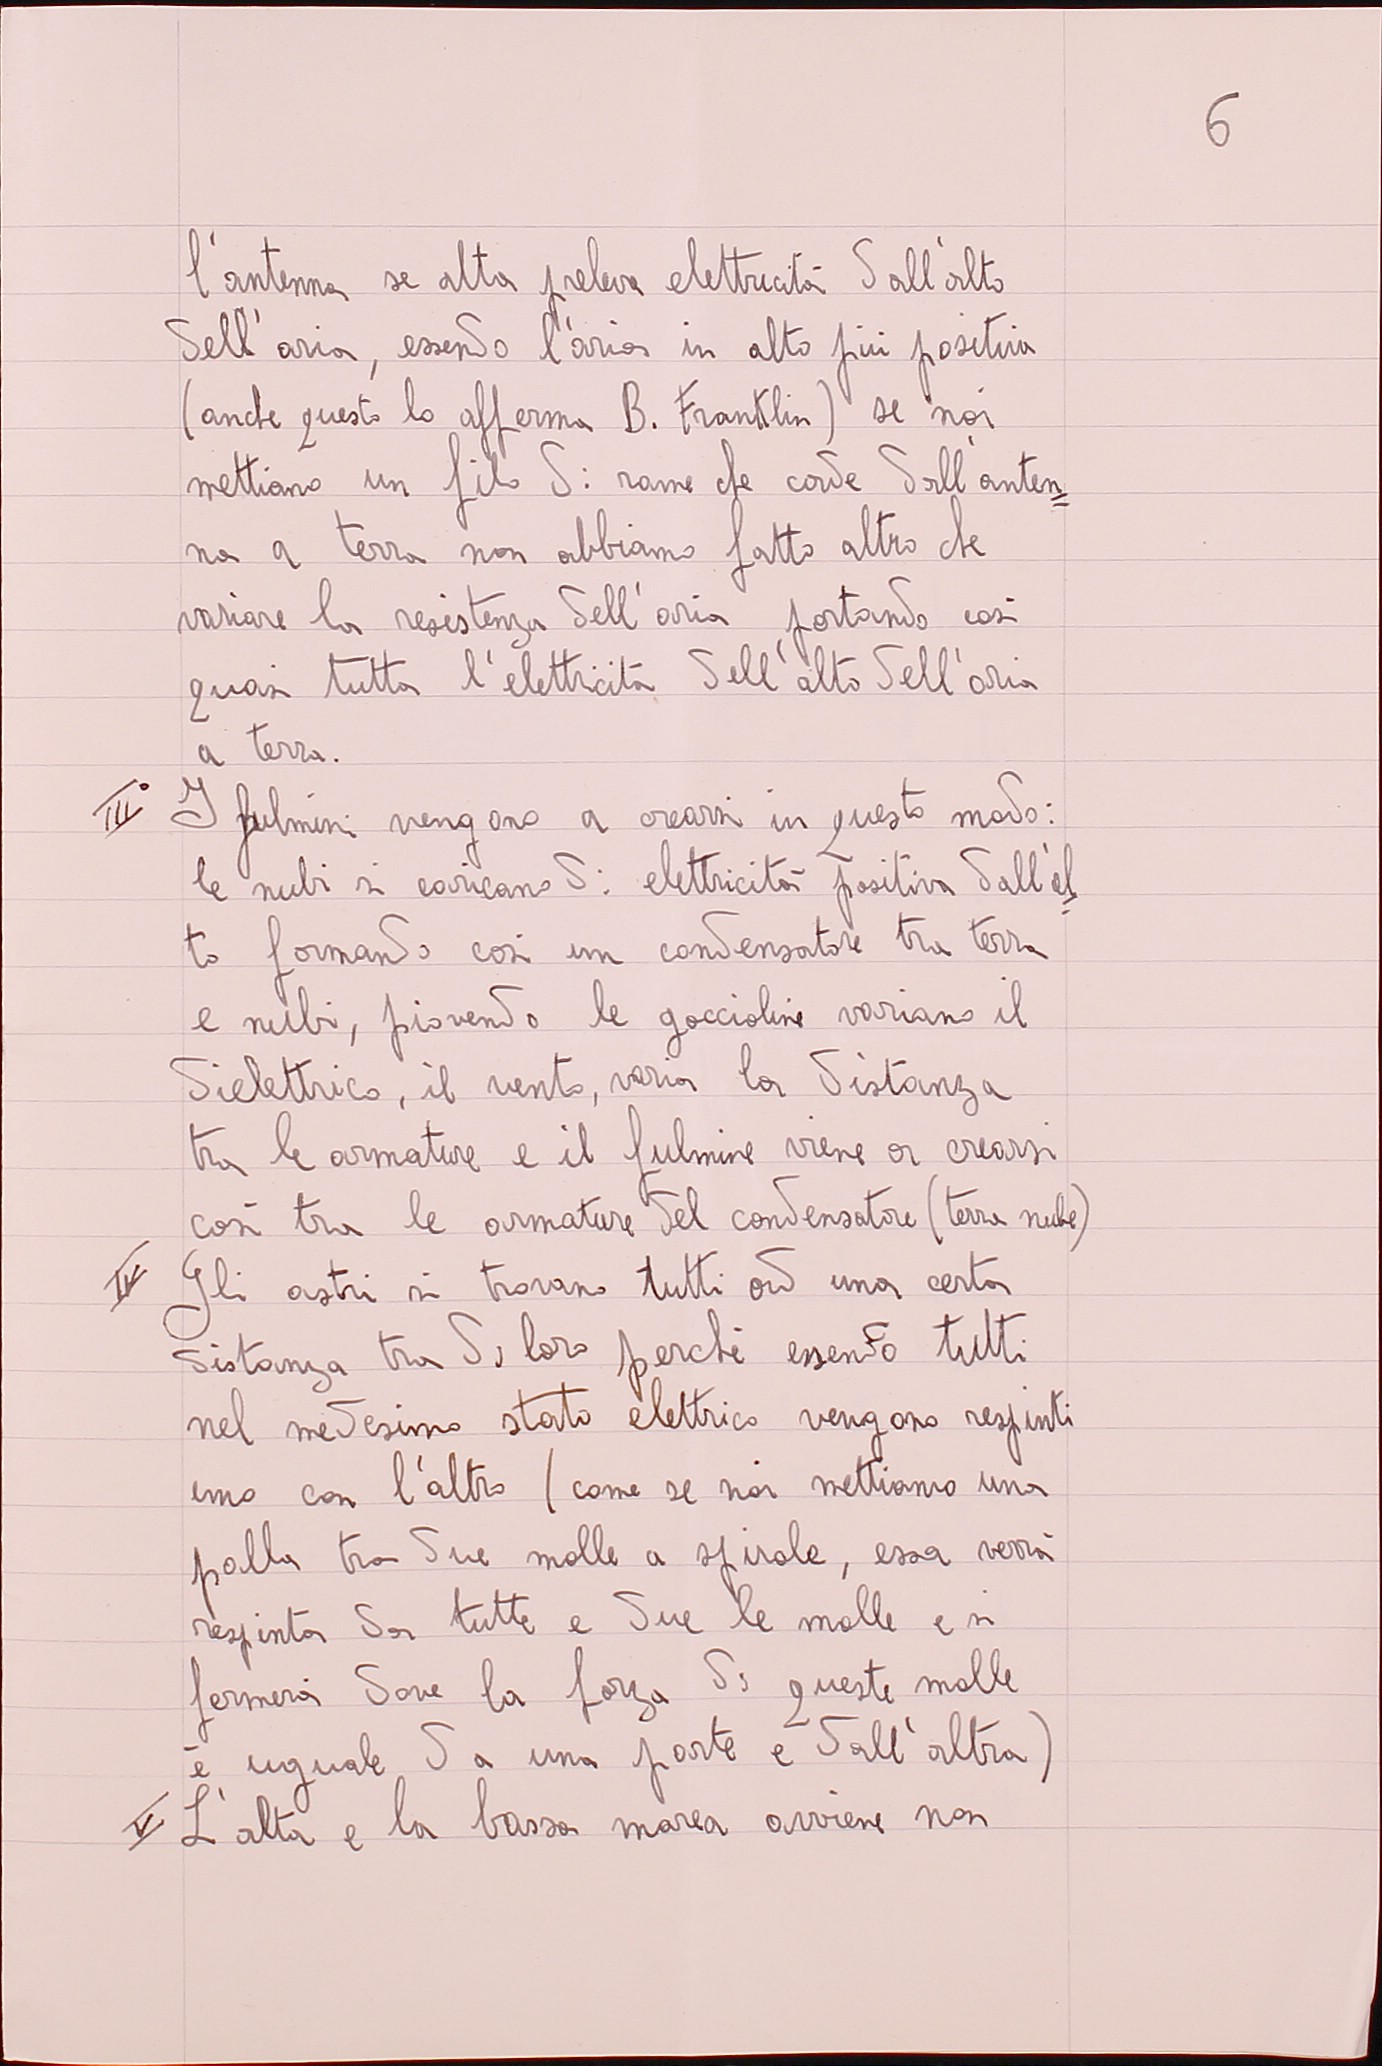 6
l'antenna se alta preleva elettricità dall'alto
dell'aria, essendo l'aria in alto più positiva
(anche questo lo afferma B. Franklin) se noi
mettiamo un filo di rame che corde dall'anten=
na a terra non abbiamo fatto altro che
variare la resistenza dell'aria portando così
quasi tutta l'elettricità dell'alto dell'aria
a terra.
III° I fulmini vengono a crearsi in questo modo:
le nubi si caricano di elettricità positiva dall'al=
to formando così un condensatore tra terra
e nubi, piovendo le goccioline variano il
dielettrico, il vento, varia la distanza
tra le armature e il fulmine viene a crearsi
così tra le armature del condensatore (terra nube)
IV Gli astri si trovano tutti ad una certa
distanza tra di loro perchè essendo tutti
nel medesimo stato elettrico vengono respinti
uno con l'altro (come se noi mettiamo una
palla tra due molle a spirale, essa verrà
respinta da tutte e due le molle e si
fermerà dove la forza di queste molle
è uguale da una parte e dall'altra)
V L'alta e la bassa marea avviene non